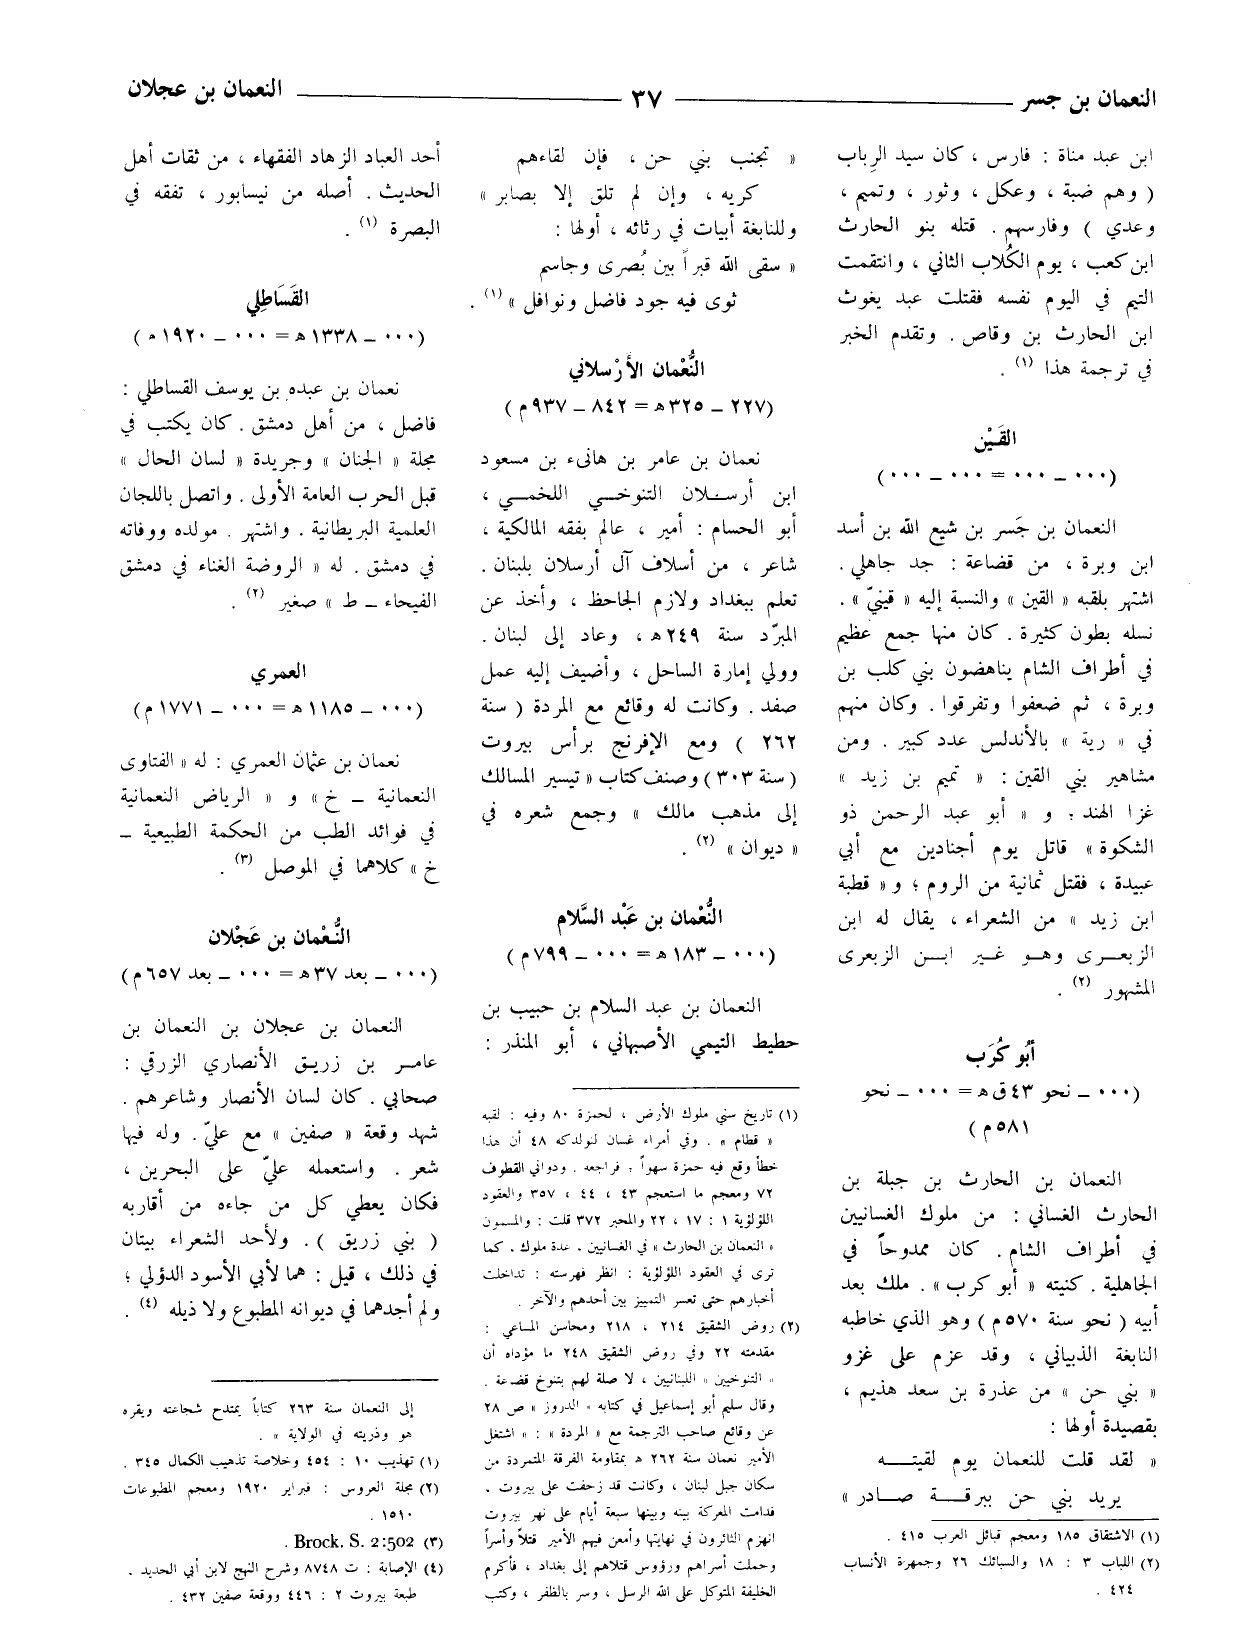 النعمان بن جسر ٣٧ النعمان بن عجلان
ابن عبد مناة : فارس ، كان سيد الرِباب
( وهم ضبة ، وعكل ، وثور ، وتميم ،
وعدي ) وفارسهم . قتله بنو الحارث
ابن كعب ، يوم الكُلاب الثاني ، وانتقمت
التيم في اليوم نفسه فقتلت عبد يغوث
ابن الحارث بن وقاص . وتقدم الخبر
في ترجمة هذا (١) .
القَيْن
(٠٠٠ ــ ٠٠٠ = ٠٠٠ ــ ٠٠٠)
النعمان بن جَسر بن شيع الله بن أسد
ابن وبرة ، من قضاعة : جد جاهلي .
اشتهر بلقبه « القين » والنسبة إليه « قينيّ » .
نسله بطون كثيرة . كان منها جمع عظيم
في أطراف الشام يناهضون بني كلب بن
وبرة ، ثم ضعفوا وتفرقوا . وكان منهم
في « رية » بالأندلس عدد كبير . ومن
مشاهير بني القين : « تميم بن زيد »
غزا الهند ؛ و « أبو عبد الرحمن ذو
الشكوة » قاتل يوم أجنادين مع أبي
عبيدة ، فقتل ثمانية من الروم ؛ و « قطبة
ابن زيد » من الشعراء ، يقال له ابن
الزبعرى وهو غير ابن الزبعرى
المشهور (٢) .
أبُو كُرَب
(٠٠٠ ــ نحو ٤٣ ق ه = ٠٠٠ ــ نحو
٥٨١ م)
النعمان بن الحارث بن جبلة بن
الحارث الغساني : من ملوك الغسانيين
في أطراف الشام . كان ممدوحاً في
الجاهلية . كنيته « أبو كرب » . ملك بعد
أبيه ( نحو سنة ٥٧٠ م ) وهو الذي خاطبه
النابغة الذبياني ، وقد عزم على غزو
« بني حن » من عذرة بن سعد هذيم ،
بقصيدة أولها :
« لقد قلت للنعمان يوم لقيته
يريد بني حن ببرقة صادر »
(١) الاشتقاق ١٨٥ ومعجم قبائل العرب ٤١٥ .
(٢) اللباب ٣ : ١٨ والسبائك ٢٦ وجمهرة الأنساب
٤٢٤ .
« تجنب بني حن ، فإن لقاءهم
كريه ، وإن لم تلق إلا بصابر »
وللنابغة أبيات في رثائه ، أولها :
« سقى الله قبراً بين بُصرى وجاسم
ثوى فيه جود فاضل ونوافل » (١) .
النُّعْمان الأرْسلاني
(٢٢٧ ــ ٣٢٥ ه = ٨٤٢ ــ ٩٣٧ م)
نعمان بن عامر بن هانىء بن مسعود
ابن أرسلان التنوخي اللخمي ،
أبو الحسام : أمير ، عالم بفقه المالكية ،
شاعر ، من أسلاف آل أرسلان بلبنان .
تعلم ببغداد ولازم الجاحظ ، وأخذ عن
المبرّد سنة ٢٤٩ ه ، وعاد إلى لبنان .
وولي إمارة الساحل ، وأضيف إليه عمل
صفد . وكانت له وقائع مع المردة ( سنة
٢٦٢ ) ومع الإفرنج برأس بيروت
( سنة ٣٠٣ ) وصنف كتاب « تيسير المسالك
إلى مذهب مالك » وجمع شعره في
« ديوان » (٢) .
النُّعْمان بن عَبْد السَّلام
(٠٠٠ ــ ١٨٣ ه = ٠٠٠ ــ ٧٩٩ م)
النعمان بن عبد السلام بن حبيب بن
حطيط التيمي الأصبهاني ، أبو المنذر :
(١) تاريخ سني ملوك الأرض ، لحمزة ٨٠ وفيه : لقبه
« قطام » . وفي أمراء غسان لنولدكه ٤٨ أن هذا
خطأ وقع فيه حمزة سهواً ؛ فراجعه . ودواني القطوف
٧٢ ومعجم ما استعجم ٤٣ ، ٤٤ ، ٣٥٧ والعقود
اللؤلؤية ١ : ١٧ ، ٢٢ والمحبر ٣٧٢ قلت : والمسمون
« النعمان بن الحارث » في الغسانيين ، عدة ملوك ، كما
ترى في العقود اللؤلؤية : انظر فهرسته : تداخلت
أخبارهم حتى تعسر التمييز بين أحدهم والآخر .
(٢) روض الشقيق ٢١٤ ، ٢١٨ ومحاسن المساعي :
مقدمته ٢٢ وفي روض الشقيق ٢٤٨ ما مؤداه أن
« التنوخيين » اللبنانيين ، لا صلة لهم بتنوخ قضاعة .
وقال سليم أبو إسماعيل في كتابه « الدروز » ص ٢٨
عن وقائع صاحب الترجمة مع « المردة » : « اشتغل
الأمير نعمان سنة ٢٦٢ ه بمقاومة الفرقة المتمردة من
سكان جبل لبنان ، وكانت قد زحفت على بيروت .
فدامت المعركة بينه وبينها سبعة أيام على نهر بيروت
انهزم الثائرون في نهايتها وأمعن فيهم الأمير قتلاً وأسراً
وحملت أسراهم ورؤوس قتلاهم إلى بغداد ، فأكرم
الخليفة المتوكل على الله الرسل ، وسر بالظفر ، وكتب
أحد العباد الزهاد الفقهاء ، من ثقات أهل
الحديث . أصله من نيسابور ، تفقه في
البصرة (١) .
القَسَاطِلي
(٠٠٠ ــ ١٣٣٨ ه = ٠٠٠ ــ ١٩٢٠ م)
نعمان بن عبده بن يوسف القساطلي :
فاضل ، من أهل دمشق . كان يكتب في
مجلة « الجنان » وجريدة « لسان الحال »
قبل الحرب العامة الأولى . واتصل باللجان
العلمية البريطانية . واشتهر . مولده ووفاته
في دمشق . له « الروضة الغناء في دمشق
الفيحاء ــ ط » صغير (٢) .
العمري
(٠٠٠ ــ ١١٨٥ ه = ٠٠٠ ــ ١٧٧١ م)
نعمان بن عثمان العمري : له « الفتاوى
النعمانية ــ خ » و « الرياض النعمانية
في فوائد الطب من الحكمة الطبيعية ــ
خ » كلاهما في الموصل (٣) .
النُّعْمان بن عَجْلان
(٠٠٠ ــ بعد ٣٧ ه = ٠٠٠ ــ بعد ٦٥٧ م)
النعمان بن عجلان بن النعمان بن
عامر بن زريق الأنصاري الزرقي :
صحابي . كان لسان الأنصار وشاعرهم .
شهد وقعة « صفين » مع عليّ . وله فيها
شعر . واستعمله عليّ على البحرين ،
فكان يعطي كل من جاءه من أقاربه
( بني زريق ) . ولأحد الشعراء بيتان
في ذلك ، قيل : هما لأبي الأسود الدؤلي ؛
ولم أجدهما في ديوانه المطبوع ولا ذيله (٤) .
إلى النعمان سنة ٢٦٣ كتاباً يمتدح شجاعته ويقره
هو وذريته في الولاية » .
(١) تهذيب ١٠ : ٤٥٤ وخلاصة تذهيب الكمال ٣٤٥ .
(٢) مجلة العروس : فبراير ١٩٢٠ ومعجم المطبوعات
١٥١٠ .
(٣) Brock. S. 2:502 .
(٤) الإصابة : ت ٨٧٤٨ وشرح النهج لابن أبي الحديد .
طبعة بيروت ٢ : ٤٤٦ ووقعة صفين ٤٣٢ .